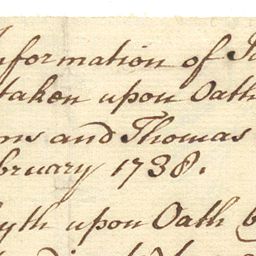 nformation of J
taken upon Oath
ons and Thomas
bruary 1738.
yth upon Oath